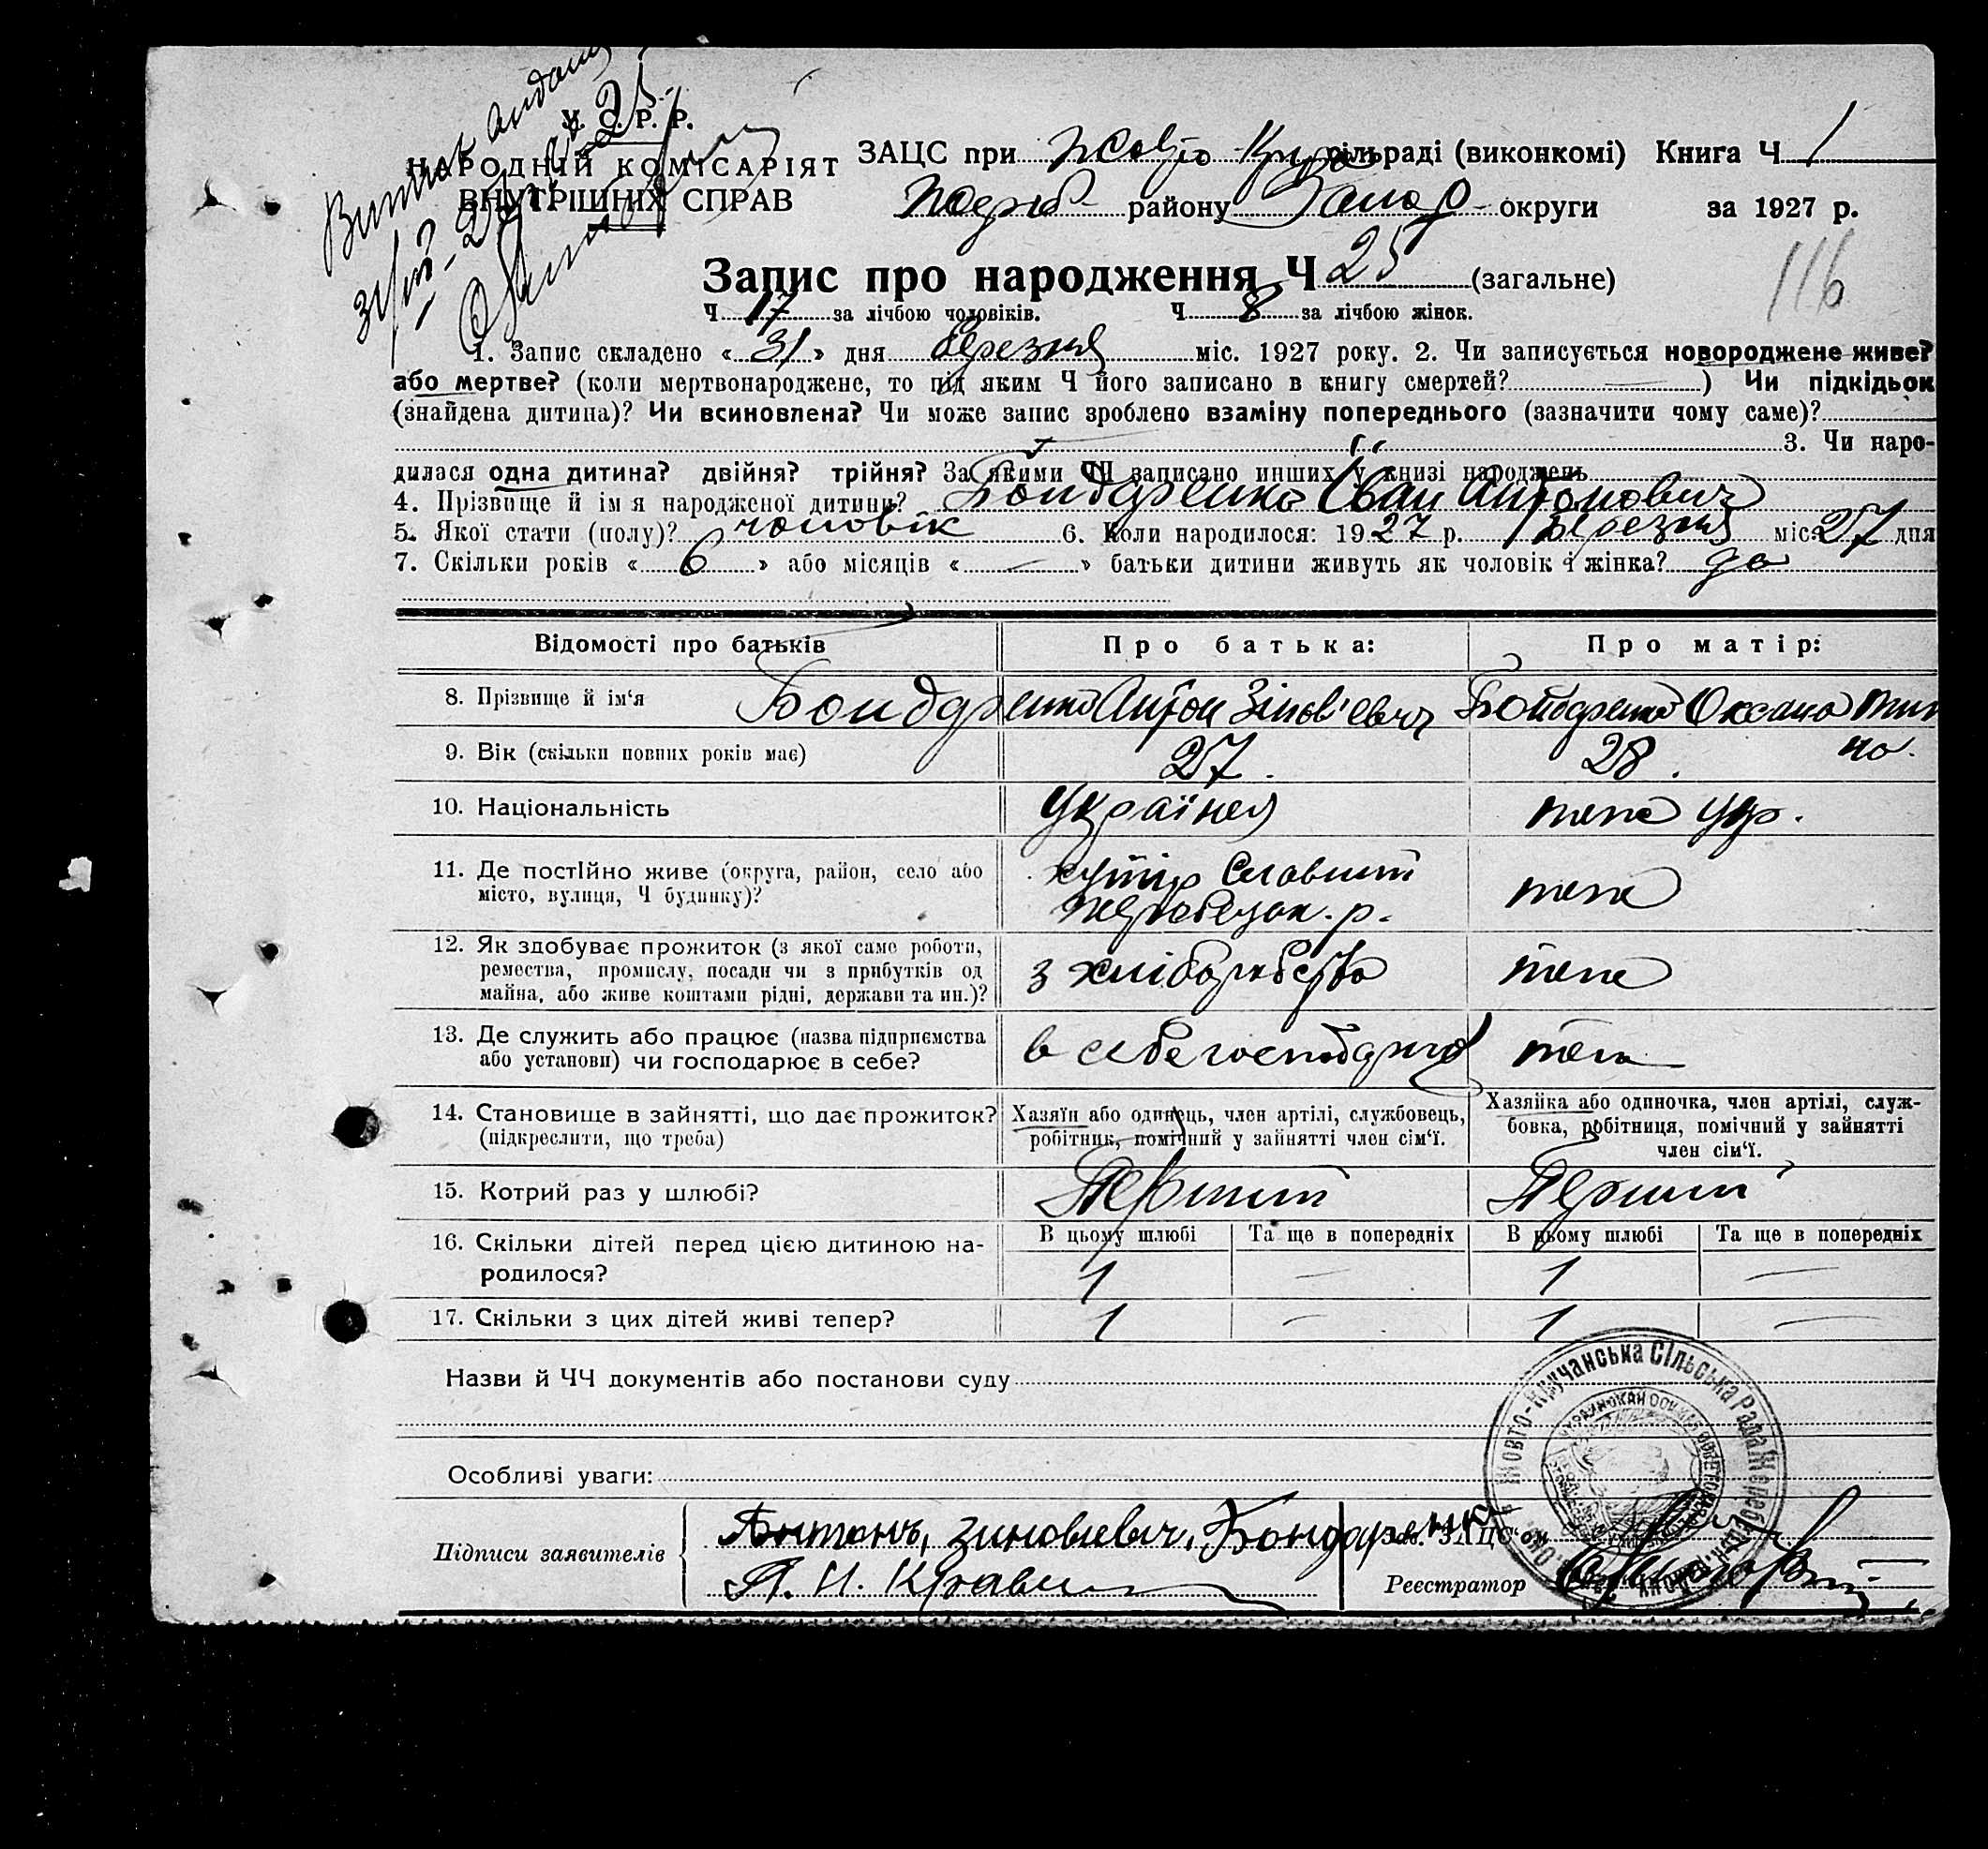 Витяг видано
31/III-27 р. № 25
У. С. Р. Р.
НАРОДНІЙ КОМІСАРІЯТ
ВНУТРІШНІХ СПРАВ
ЗАЦС при Жовто-Круч сільраді (виконкомі) Книга Ч 1
Жереб району Запор округи за 1927 р.
116
Запис про народження Ч 25 (загальне)
Ч 17 за лічбою чоловіків. Ч 8 за лічбою жінок.
1. Запис складено «31» дня березня міс. 1927 року. 2. Чи записується новороджене живе?
або мертве? (коли мертвонароджене, то під яким Ч його записано в книгу смертей? —) Чи підкідьок
(знайдена дитина)? Чи всиновлена? Чи може запис зроблено взаміну попереднього (зазначити чому саме)?
3. Чи наро-
дилася одна дитина? двійня? трійня? За якими ЧЧ записано инших у книзі народжень
4. Прізвище й ім я народженої дитини? Бондаренко Іван Антонович
5. Якої стати (полу)? чоловік 6. Коли народилося: 1927 р. березня міс. 27 дня
7. Скільки років «6» або місяців «—» батьки дитини живуть як чоловік і жінка? да
Відомості про батьків Про батька: Про матір:
8. Прізвище й ім'я Бондаренко Антон Зіновієвич Бондаренко Оксана
9. Вік (скільки повних років має) 27. 28.
10. Національність Українец теж укр.
11. Де постійно живе (округа, район, село або
місто, вулиця, Ч будинку)?
хутір Славний
Жеребецьк. р.
теж
12. Як здобуває прожиток (з якої саме роботи,
ремества, промислу, посади чи з прибутків од
майна, або живе коштами рідні, держави та ин.)?
з хліборобства
теж
13. Де служить або працює (назва підприємства
або установи) чи господарює в себе?
в себе господарює
теж
14. Становище в зайнятті, що дає прожиток?
(підкреслити, що треба)
Хазяїн або одинець, член артілі, службовець,
робітник, помічний у зайнятті член сім'ї.
Хазяйка або одиночка, член артілі, служ-
бовка, робітниця, помічний у зайнятті
член сім'ї.
15. Котрий раз у шлюбі? Первий Первий
16. Скільки дітей перед цією дитиною на-
родилося?
В цьому шлюбі Та ще в попередніх В цьому шлюбі Та ще в попередніх
1 — 1 —
17. Скільки з цих дітей живі тепер? 1 — 1 —
Назви й ЧЧ документів або постанови суду
Особливі уваги:
Підписи заявителів
Антонъ, Зиновиевич, Бондаренко
Зав. ЗАЦС'ом
Реєстратор
Жовто-Кручанська Сільська Рада